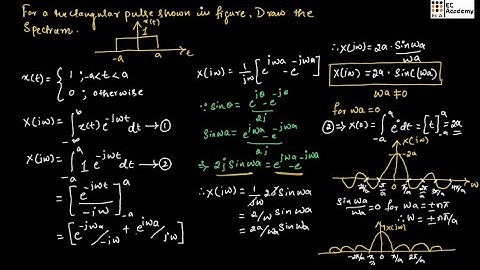 For a rectangular pulse shown in figure, Draw the
Spectrum.
x(t)
1
-a
a
t
x(t) = { 1 ; -a<t<a
0 ; otherwise
X(jω) = ∫_{-∞}^{∞} x(t) e^{-jωt} dt → ①
X(jω) = ∫_{-a}^{a} 1 e^{-jωt} dt → ②
= [e^{-jωt}/-jω]_{-a}^{a}
= [e^{-jωa}/-jω + e^{jωa}/jω]
X(jω) = 1/jω [e^{jωa} - e^{-jωa}]
∵ sinθ = (e^{jθ} - e^{-jθ})/2j
sinωa = (e^{jωa} - e^{-jωa})/2j
⇒ 2j sinωa = e^{jωa} - e^{-jωa}
∴ X(jω) = 1/jω 2j sinωa
= 2/ω sinωa
= 2a/ωa sinωa
∴ X(jω) = 2a · sinωa/ωa
X(jω) = 2a · sinc(ωa)
ωa ≠ 0
for ωa = 0
② ⇒ X(0) = ∫_{-a}^{a} e^0 dt = [t]_{-a}^{a} = 2a
X(jω)
2a
ω
sinωa/ωa = 0 for ωa = ±nπ
∴ ω = ±nπ/a
|X(jω)|
EC Academy